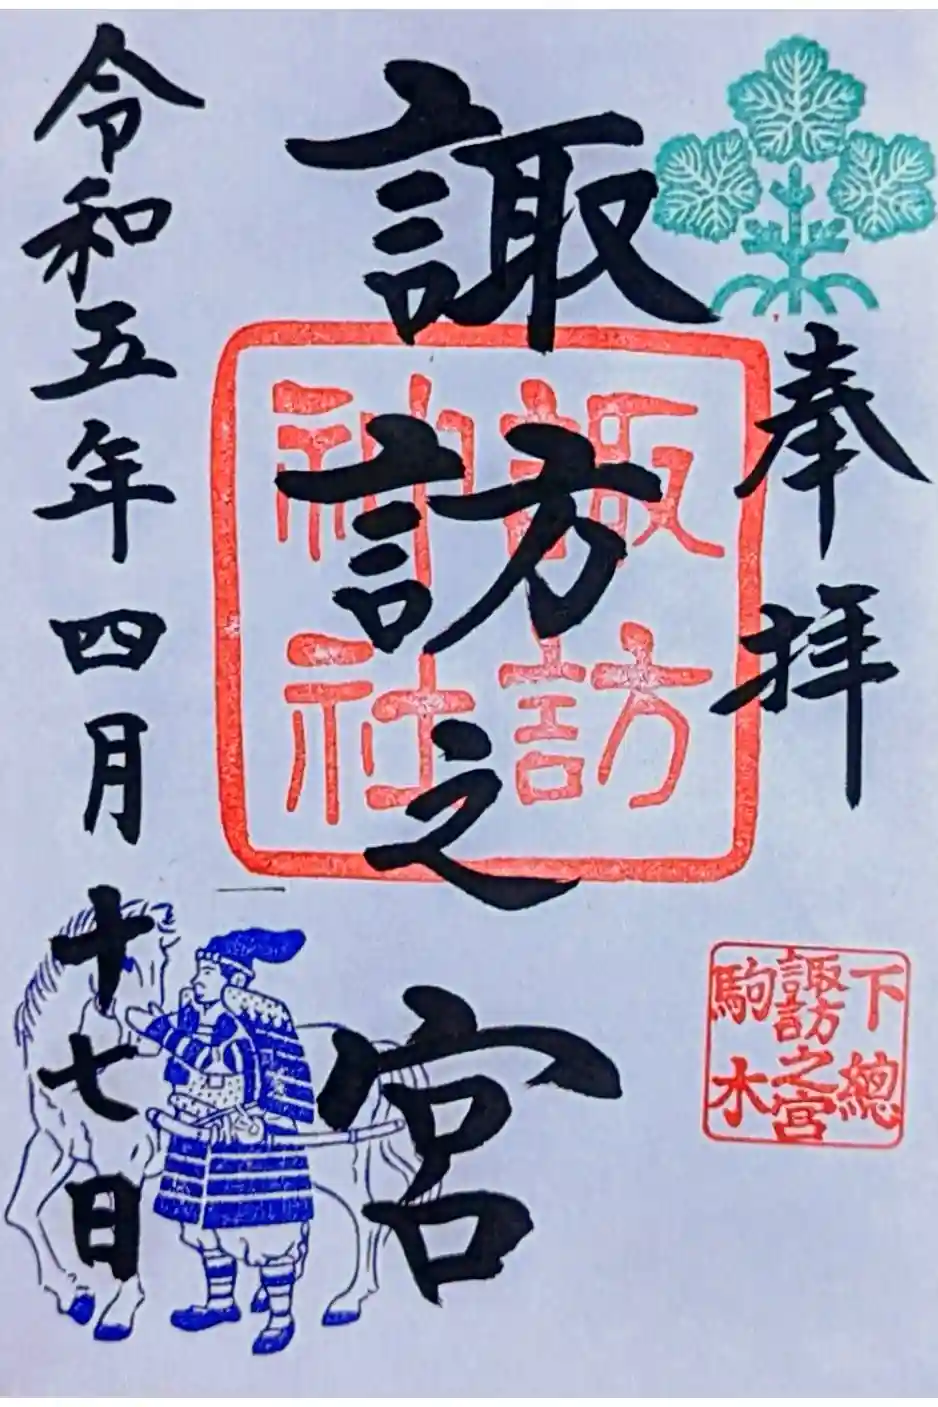 奉拝
諏訪之宮
令和五年四月十七日
諏訪
神社
下總
諏訪之宮
駒木